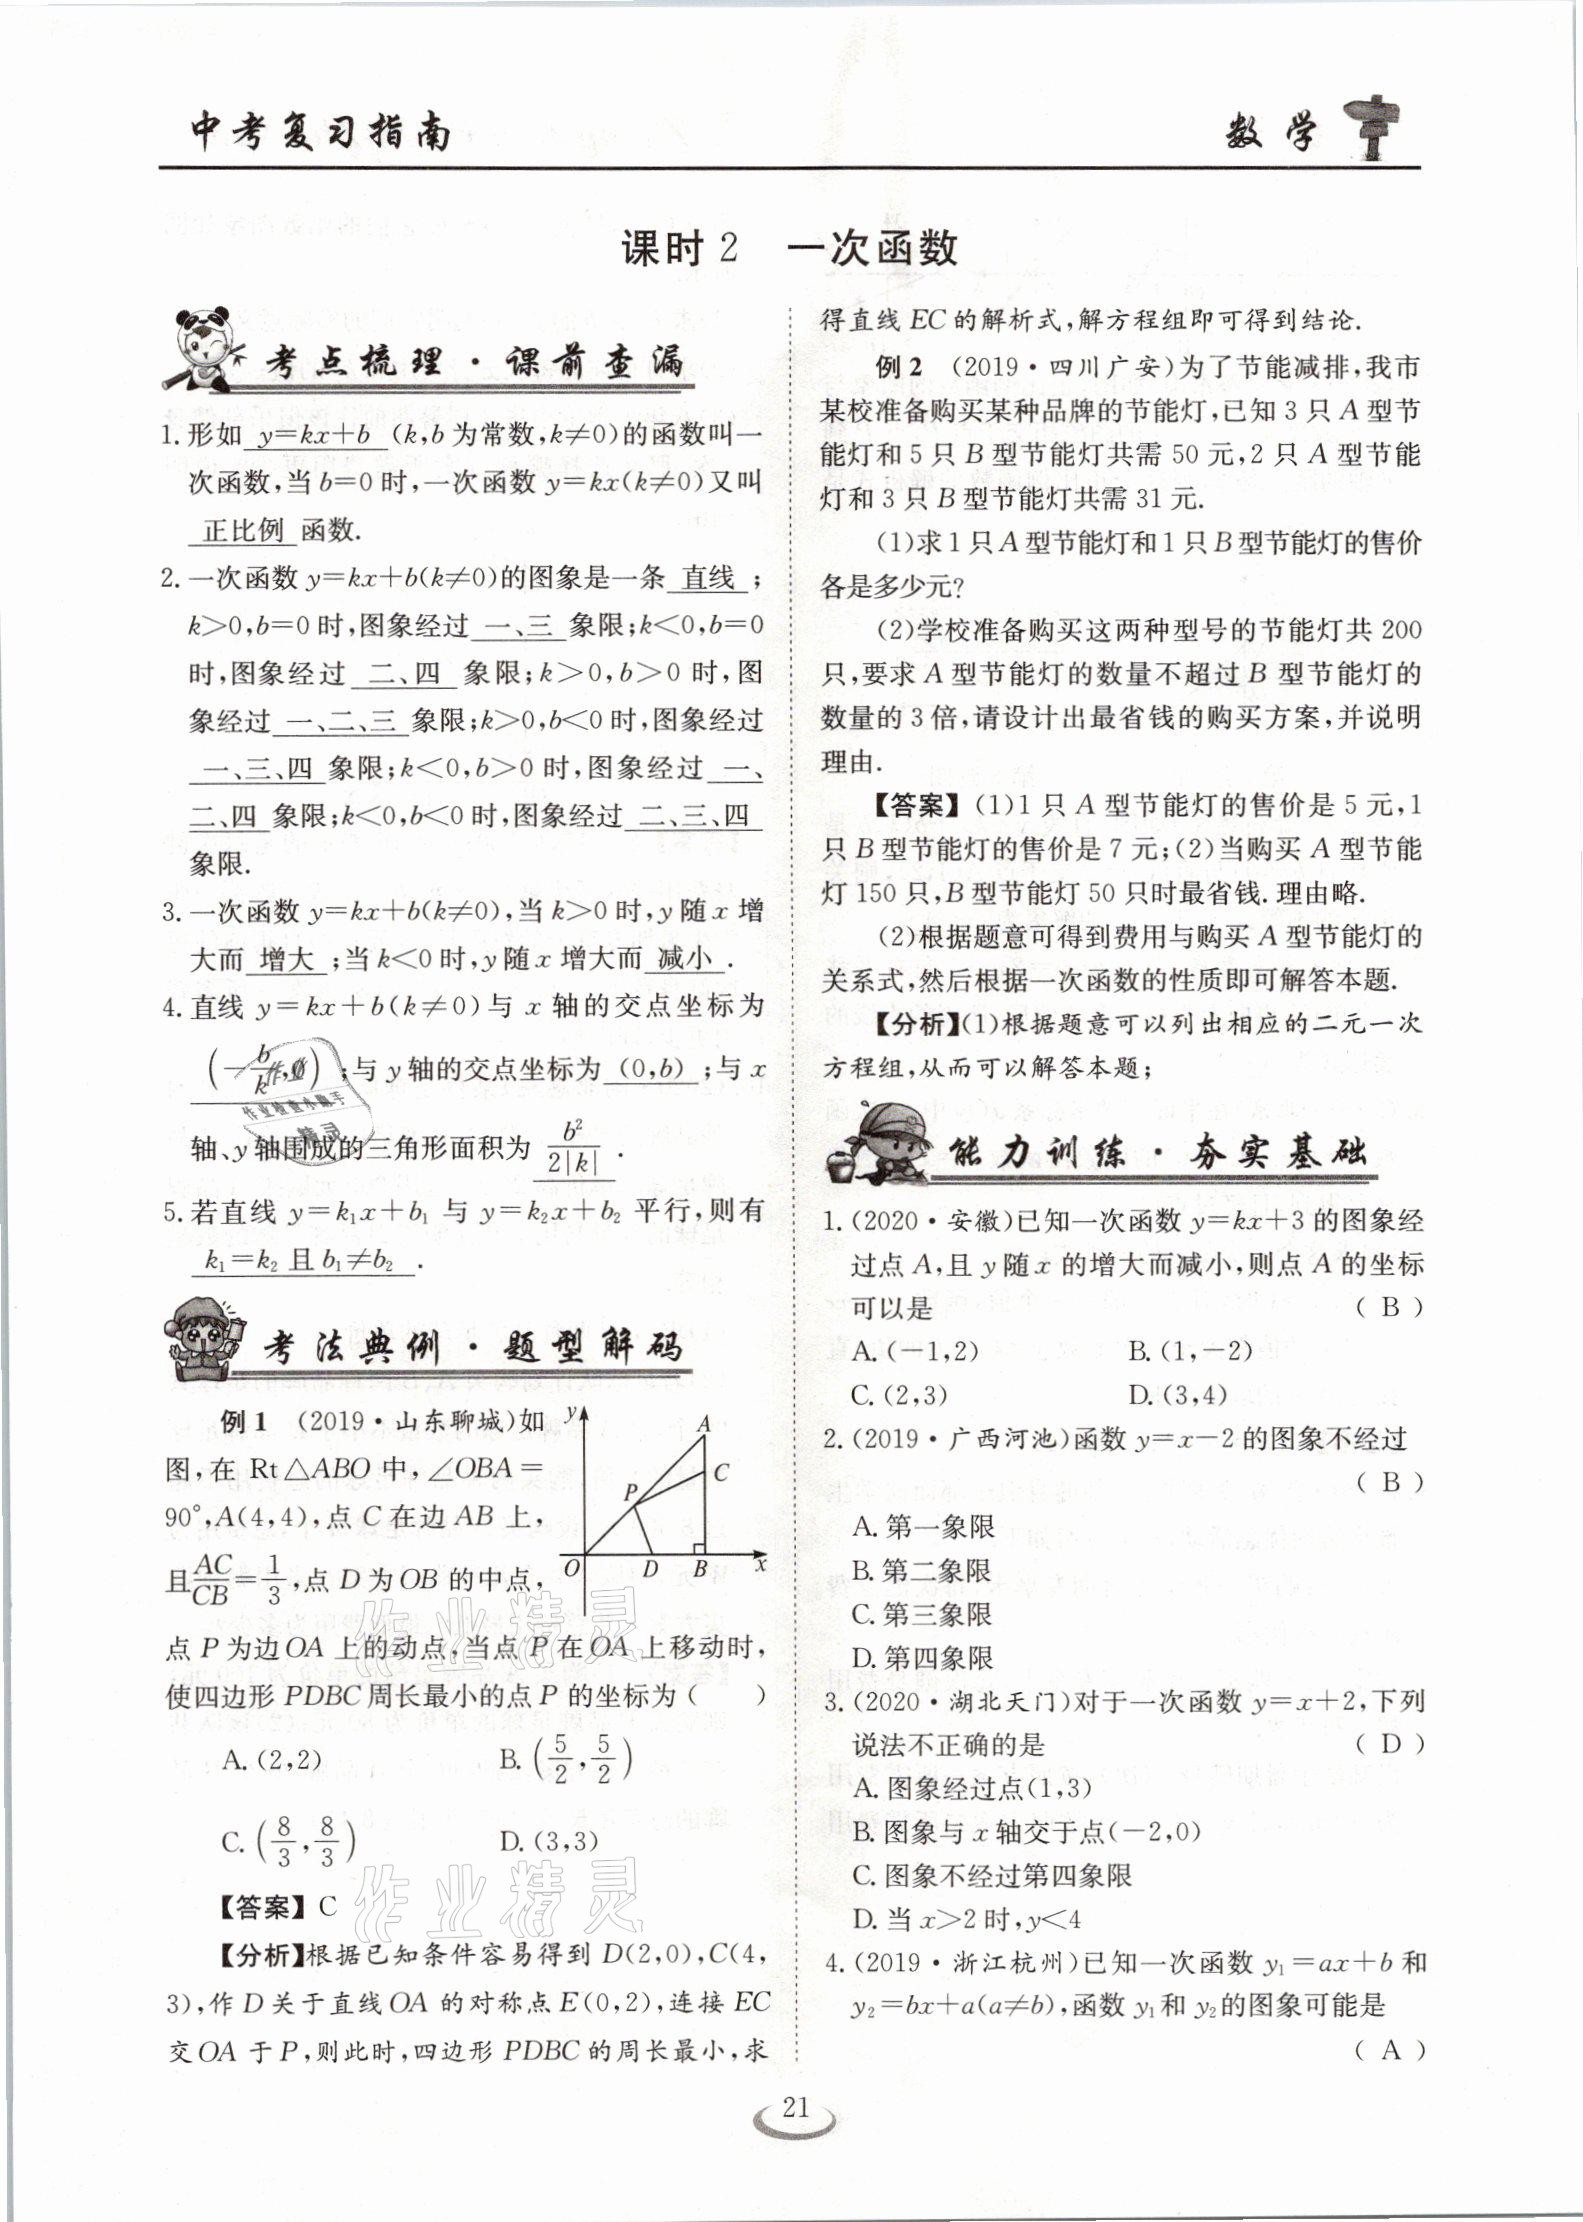 中考复习指南
数学
课时2 一次函数
考点梳理·课前查漏
1. 形如 y=kx+b (k,b为常数,k≠0)的函数叫一
次函数,当b=0时,一次函数y=kx(k≠0)又叫
正比例 函数.
2. 一次函数y=kx+b(k≠0)的图象是一条 直线 ;
k>0,b=0时,图象经过 一、三 象限;k<0,b=0
时,图象经过 二、四 象限;k>0,b>0时,图
象经过 一、二、三 象限;k>0,b<0时,图象经过
一、三、四 象限;k<0,b>0时,图象经过 一、
二、四 象限;k<0,b<0时,图象经过 二、三、四
象限.
3. 一次函数y=kx+b(k≠0),当k>0时,y随x增
大而 增大 ;当k<0时,y随x增大而 减小 .
4. 直线y=kx+b(k≠0)与x轴的交点坐标为
(-b/k,0) ;与y轴的交点坐标为 (0,b) ;与x
轴、y轴围成的三角形面积为 b²/2|k| .
5. 若直线y=k₁x+b₁与y=k₂x+b₂平行,则有
k₁=k₂且b₁≠b₂ .
考法典例·题型解码
例1 (2019·山东聊城)如
图,在Rt△ABO中,∠OBA=
90°,A(4,4),点C在边AB上,
且AC/CB=1/3,点D为OB的中点,
点P为边OA上的动点,当点P在OA上移动时,
使四边形PDBC周长最小的点P的坐标为( )
y
A
C
P
O
D
B
x
A. (2,2) B. (5/2,5/2)
C. (8/3,8/3) D. (3,3)
【答案】C
【分析】根据已知条件容易得到D(2,0),C(4,
3),作D关于直线OA的对称点E(0,2),连接EC
交OA于P,则此时,四边形PDBC的周长最小,求
得直线EC的解析式,解方程组即可得到结论.
例2 (2019·四川广安)为了节能减排,我市
某校准备购买某种品牌的节能灯,已知3只A型节
能灯和5只B型节能灯共需50元,2只A型节能
灯和3只B型节能灯共需31元.
(1)求1只A型节能灯和1只B型节能灯的售价
各是多少元?
(2)学校准备购买这两种型号的节能灯共200
只,要求A型节能灯的数量不超过B型节能灯的
数量的3倍,请设计出最省钱的购买方案,并说明
理由.
【答案】(1)1只A型节能灯的售价是5元,1
只B型节能灯的售价是7元;(2)当购买A型节能
灯150只,B型节能灯50只时最省钱.理由略.
(2)根据题意可得到费用与购买A型节能灯的
关系式,然后根据一次函数的性质即可解答本题.
【分析】(1)根据题意可以列出相应的二元一次
方程组,从而可以解答本题;
能力训练·夯实基础
1. (2020·安徽)已知一次函数y=kx+3的图象经
过点A,且y随x的增大而减小,则点A的坐标
可以是 ( B )
A. (-1,2) B. (1,-2)
C. (2,3) D. (3,4)
2. (2019·广西河池)函数y=x-2的图象不经过
( B )
A. 第一象限
B. 第二象限
C. 第三象限
D. 第四象限
3. (2020·湖北天门)对于一次函数y=x+2,下列
说法不正确的是 ( D )
A. 图象经过点(1,3)
B. 图象与x轴交于点(-2,0)
C. 图象不经过第四象限
D. 当x>2时,y<4
4. (2019·浙江杭州)已知一次函数y₁=ax+b和
y₂=bx+a(a≠b),函数y₁和y₂的图象可能是
( A )
21
作业
作业检查小助手
精灵
作业精灵
作业精灵